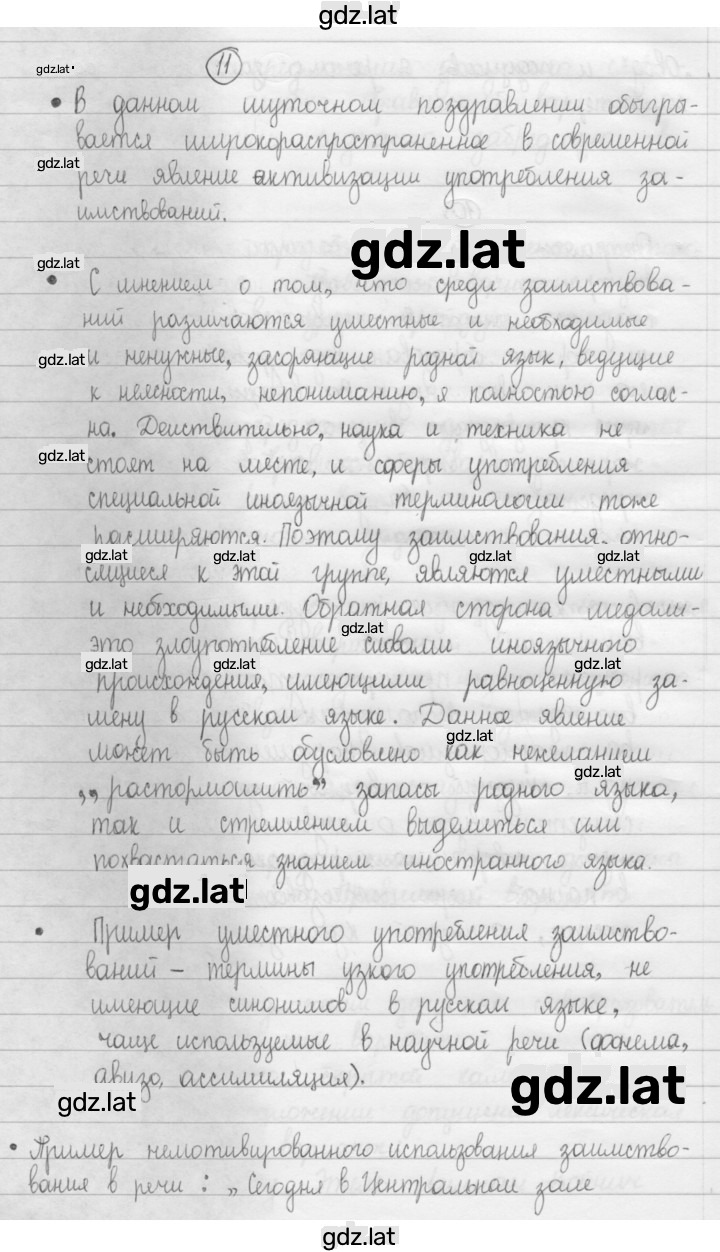 gdz.lat
gdz.lat
11
• В данном шуточном поздравлении обыгры-
вается широкораспространенное в современной
gdz.lat
речи явление активизации употребления за-
имствований.
gdz.lat
gdz.lat
• С мнением о том, что среди заимствова-
ний различаются уместные и необходимые
gdz.lat
и ненужные, засоряющие родной язык, ведущие
к неясности, непониманию, я полностью соглас-
на. Действительно, наука и техника не
gdz.lat
стоят на месте, и сферы употребления
специальной иноязычной терминологии тоже
расширяются. Поэтому заимствования, отно-
gdz.lat gdz.lat gdz.lat gdz.lat
сящиеся к этой группе, являются уместными
и необходимыми. Обратная сторона медали-
gdz.lat
это злоупотребление словами иноязычного
gdz.lat gdz.lat gdz.lat
происхождения, имеющими равноценную за-
мену в русском языке. Данное явление
gdz.lat
может быть обусловлено как нежеланием
gdz.lat
„растормошить" запасы родного языка,
так и стремлением выделиться или
похвастаться знанием иностранного языка.
gdz.lat
• Пример уместного употребления заимство-
ваний – термины узкого употребления, не
имеющие синонимов в русском языке,
чаще используемые в научной речи (фонема,
авизо, ассимиляция).
gdz.lat
gdz.lat
• Пример немотивированного использования заимство-
вания в речи: „Сегодня в Центральном зале
gdz.lat